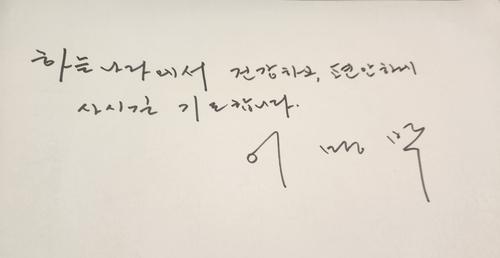 하늘나라에서 건강하고, 편안하게
사시길 기도합니다.